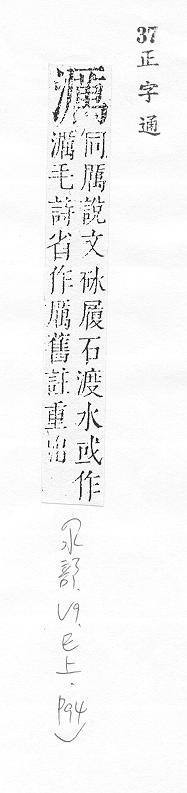 37
正字通
濿
同厲說文砅履石渡水或作
濿毛詩省作厲舊註重出
水部.V9.巳上.P94)